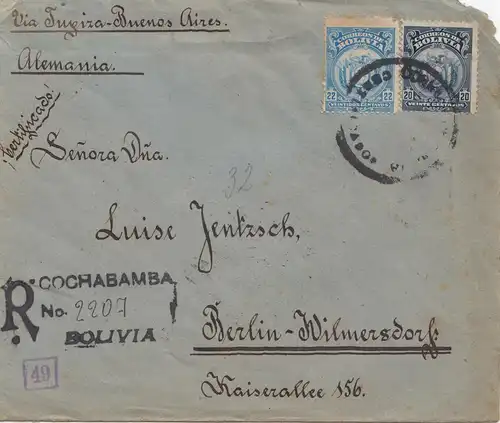 Via Tupiza-Buenos Aires.
Alemania.
¡Certificado!
CORREOS DE
BOLIVIA
22
22
VEINTIDOS CENTAVOS
CORREOS DE
BOLIVIA
20
20
VEINTE CENTAVOS
Señora Dña.
32
Luise Jentzsch,
R
COCHABAMBA
No. 2207
BOLIVIA
Berlin-Wilmersdorf
Kaiserallee 156.
49